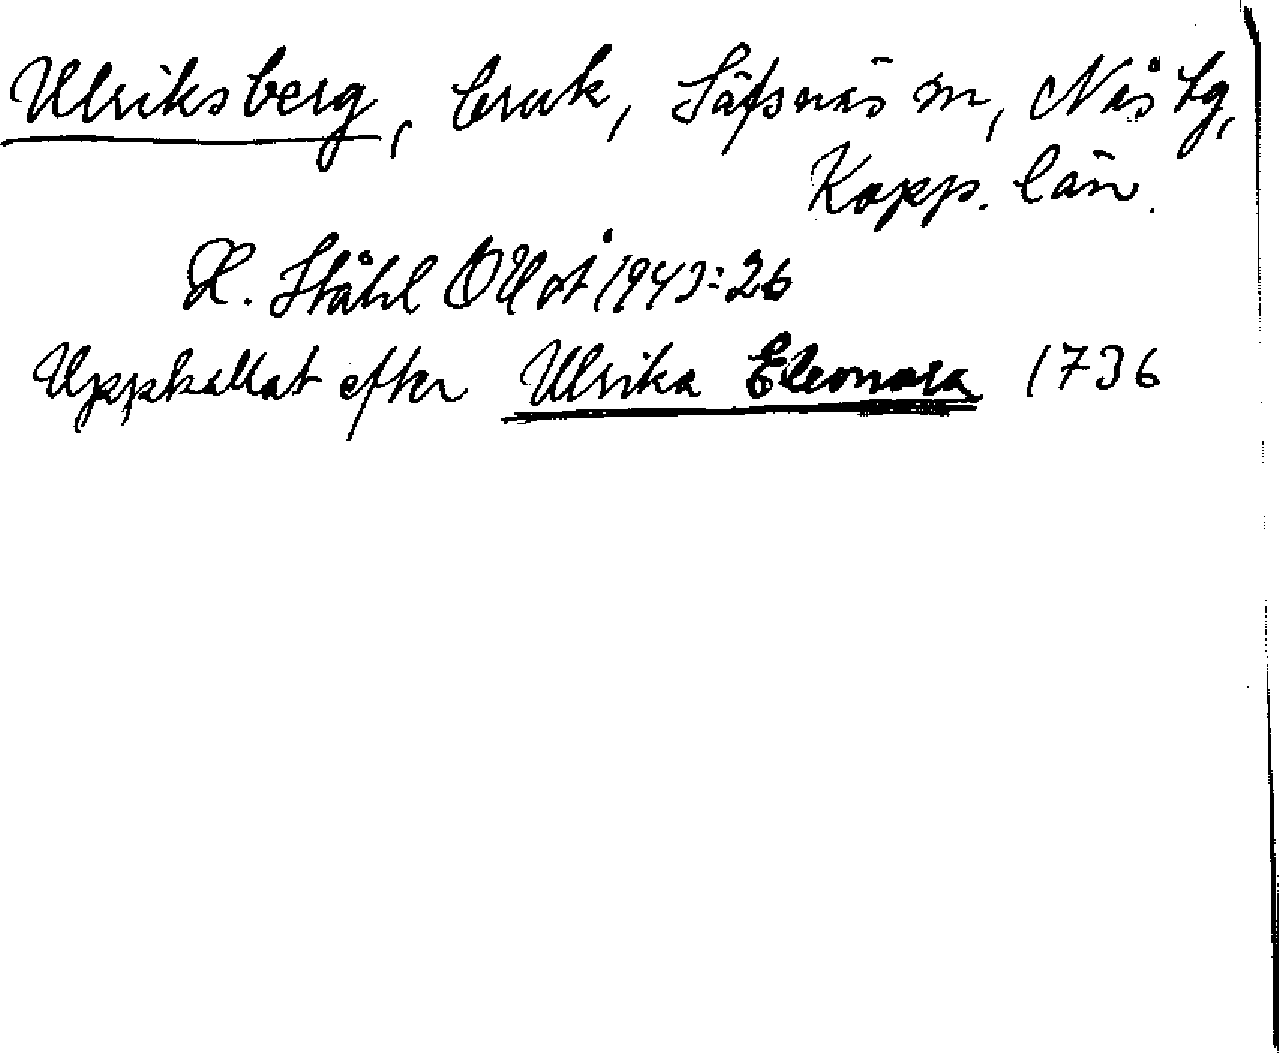 Ulriksberg, bruk, Säfsnäs sn, Nås tg,
Kopp. län.
H. Ståhl OUoÅ 1943:26
Uppkallat efter Ulrika Eleonora 1736